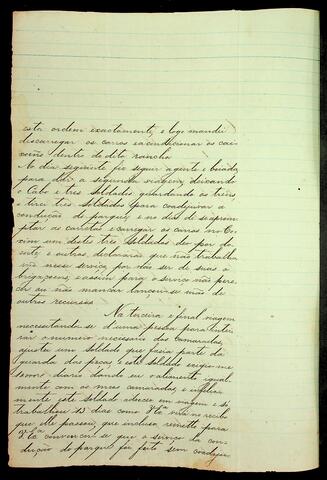 esta ordem exactamente, e logo mandei
descarregar os carros e acondicionar os cai-
xões dentro de dito rancho
No dia seguinte fiz seguir a gente e boiada
para dar a segunda viagem, deixando
o Cabo e tres soldados guardando os trens
e tirei tres soldados para coadjuvar a
condução do parque, e no dia de se apromp-
ptar as carretas e carregar os carros no
um destes tres soldados deu por do-
ente e outros declararão que não trabalha-
vão nesse serviço por não ser de suas o-
brigações, e assim para o serviço não pere-
cer ou não mancar lancei-se mão de
outros recursos
Na terceira e final viagem
necessitando-se d'uma pessoa para intei-
rar o numero necessario dos camaradas,
ajustei um soldado que fasia parte da
guarda das peças, e este soldado exigio
diario dando eu vatimento igual-
mente com os meus camaradas, e infeliz-
mente este soldado adoeceu em viagem e só
trabalhou 13 dias como Vª Sª verá no recibo
que elle passou, que incluso remetto para
Vª Sª convencer-se que o serviço da con-
dução do parque foi feito sem coadju